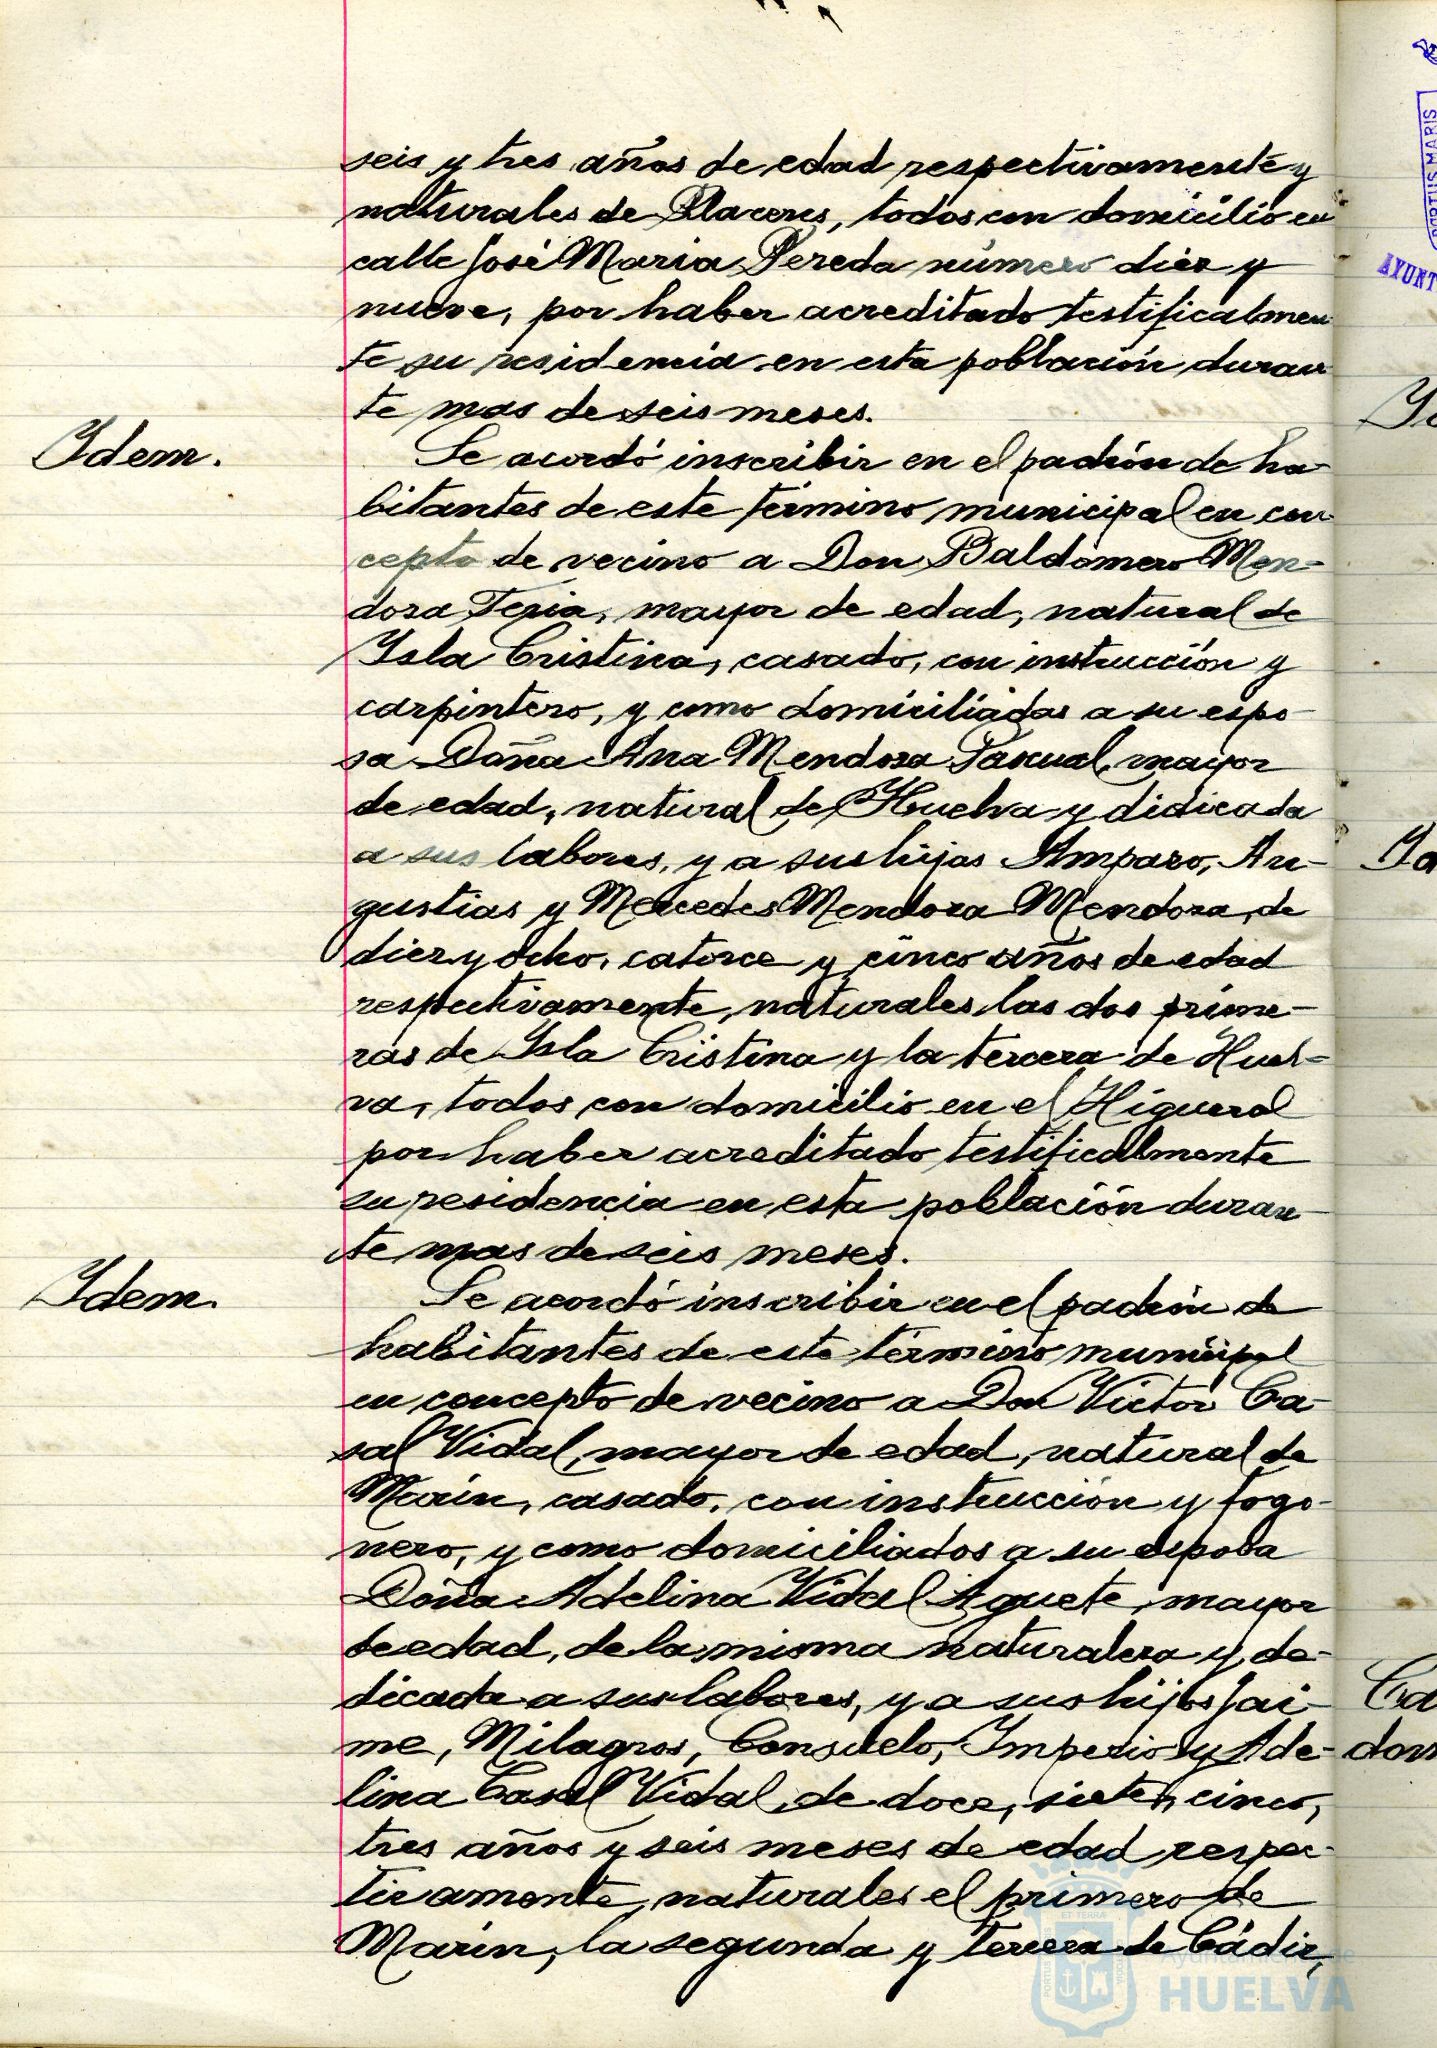 seis y tres años de edad respectivamente y
naturales de Placeres, todos con domicilio en
calle José Maria Pereda número diez y
nueve, por haber acreditado testificalmen
te su residencia en esta población duran
te mas de seis meses.
Idem.
Se acordó inscribir en el padrón de ha-
bitantes de este término municipal en con-
cepto de vecino a Don Baldomero Men-
doza Feria, mayor de edad, natural de
Isla Cristina, casado, con instrucción y
carpintero, y como domiciliadas a su espo-
sa Doña Ana Mendoza Pascual, mayor
de edad, natural de Huelva y didicada
a sus labores, y a sus hijas Amparo, An-
gustias y Mercedes Mendoza Mendoza, de
diez y ocho, catorce y cinco años de edad
respectivamente, naturales las dos prime-
ras de Isla Cristina y la tercera de Huel-
va, todos con domicilio en el Higueral
por haber acreditado testificalmente
su residencia en esta población duran
te mas de seis meses.
Idem.
Se acordó inscribir en el padrón de
habitantes de este término municipal
en concepto de vecino a Don Victor Ca-
sal Vidal, mayor de edad, natural de
Marín, casado, con instrucción y fogo-
nero, y como domiciliados a su esposa
Doña Adelina Vidal Aguete, mayor
de edad, de la misma naturaleza y de-
dicada a sus labores, y a sus hijos Jai-
me, Milagros, Consuelo, Imperio y Ade-
lina Casal Vidal, de doce, siete, cinco,
tres años y seis meses de edad respec-
tivamente, naturales el primero de
Marín, la segunda y tercera de Cádiz,
PORTUS MARIS
AYUNT
Ca
don
Ayuntamiento de
HUELVA